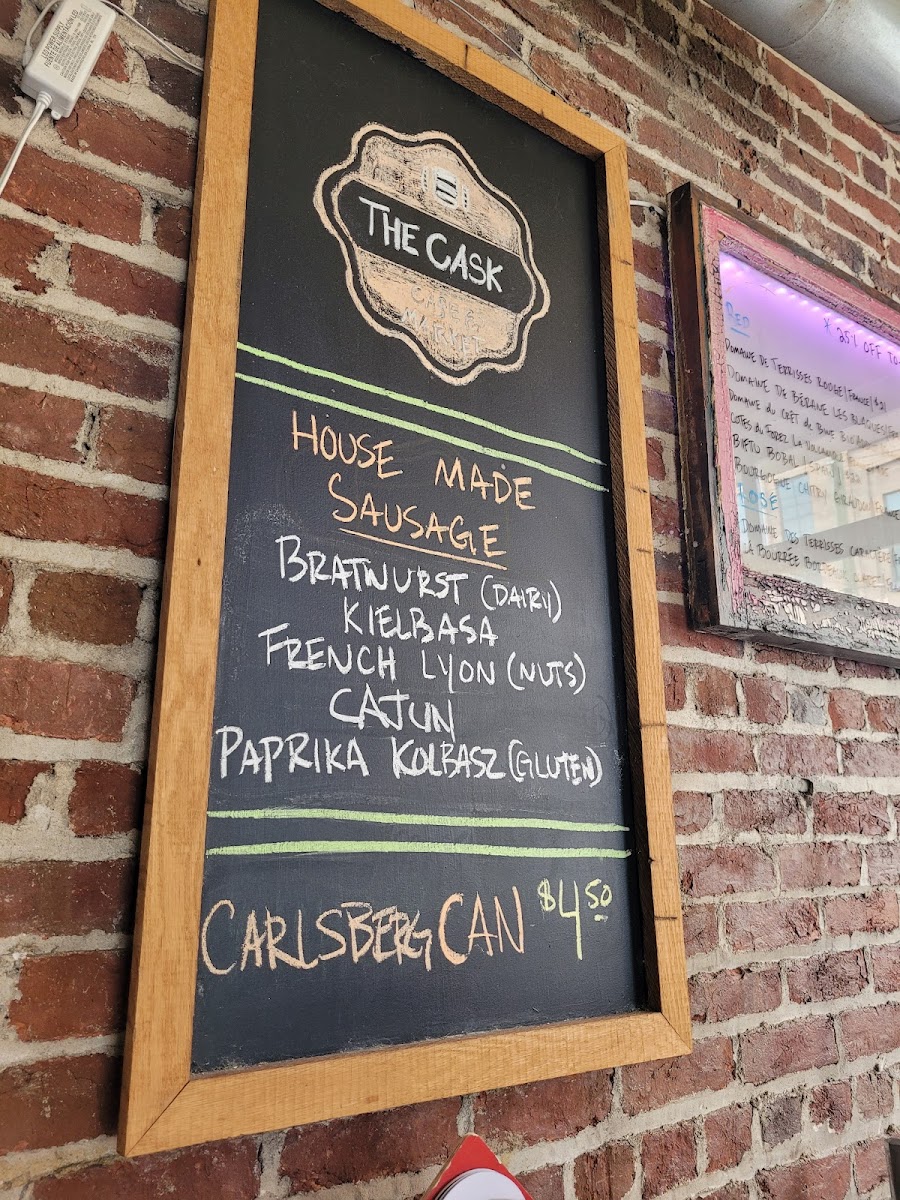 THE CASK
CAFE &
MARKET
HOUSE MADE
SAUSAGE
BRATWURST (DAIRY)
KIELBASA
FRENCH LYON (NUTS)
CAJUN
PAPRIKA KOLBASZ (GLUTEN)
CARLSBERG CAN $4.50
LED POWER SUPPLY
RED
* 25% OFF TO
DOMAINE DE TERRISSES ROUGE | FRANCE | $21
DOMAINE DE BÉRANE LES BLAQUES
DOMAINE DU CRÊT DE BINE
CÔTES DU FOREZ LA VOLCANIQUE
BIFTU BOBAL | SPAIN | $22
BOURGOGNE CHITRY
ROSÉ
DOMAINE DES TERRISSES
LA BOURRÉE